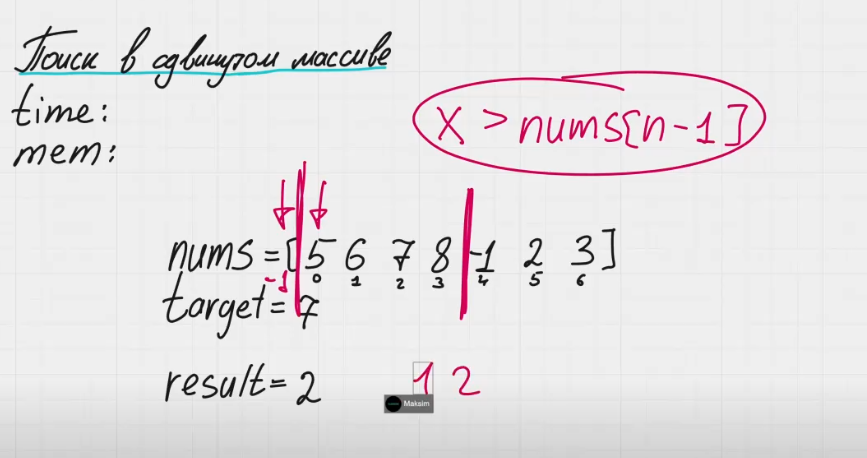 Поиск в сдвинутом массиве
time:
mem:
x > nums[n-1]
nums = [5 6 7 8 -1 2 3]
-1 0 1 2 3 4 5 6
target = 7
result = 2
1 2
Maksim